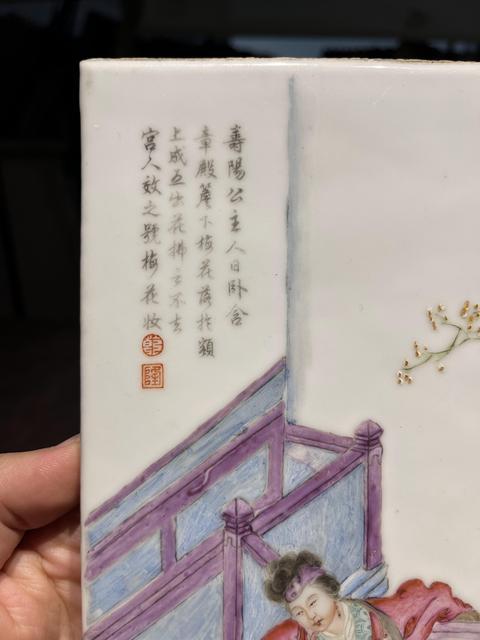 壽陽公主人日卧含
章殿簷下梅花落於額
上成五出花拂之不去
宫人效之號梅花妝
華
隆